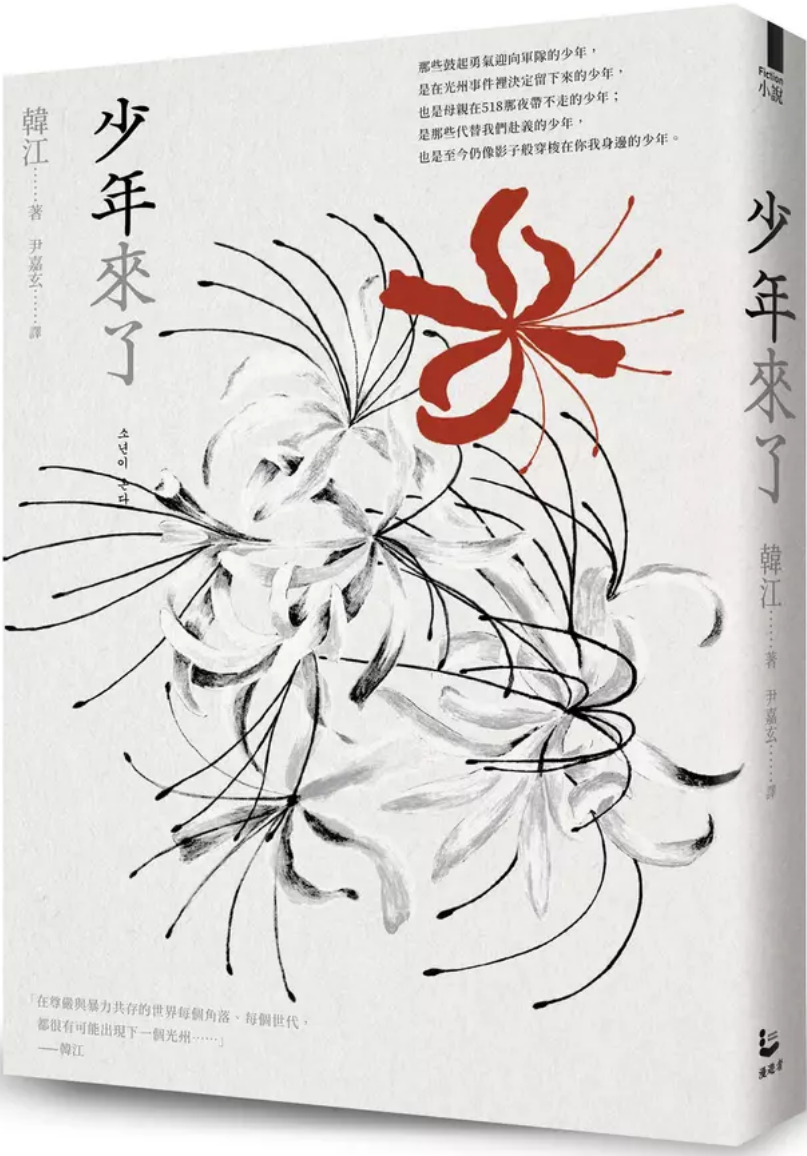 那些鼓起勇氣迎向軍隊的少年，
是在光州事件裡決定留下來的少年，
也是母親在518那夜帶不走的少年；
是那些代替我們赴義的少年，
也是至今仍像影子般穿梭在你我身邊的少年。
少年來了
韓江……著 尹嘉玄……譯
소년이 온다
「在尊嚴與暴力共存的世界每個角落、每個世代，
都很有可能出現下一個光州……」
——韓江
Fiction
小說
少年來了
韓江……著 尹嘉玄……譯
漫遊者